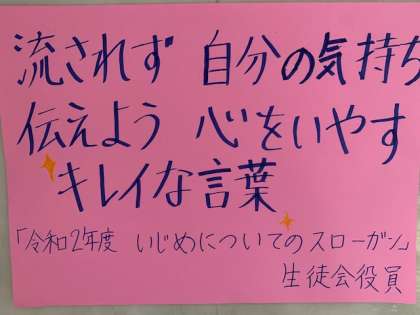 流されず 自分の気持ち
伝えよう 心をいやす
キレイな言葉
「令和2年度 いじめについてのスローガン」
生徒会役員